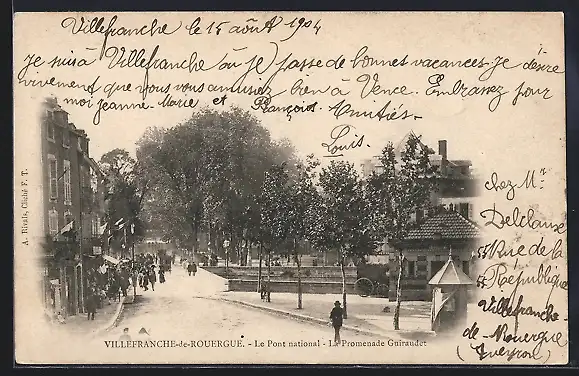 Villefranche le 15 août 1904
Je suis à Villefranche de Rouergue où je passe de bonnes vacances. Je désire
vivement que vous vous amusiez bien à Vence. Embrassez pour
moi Jeanne-Marie et François. Amitiés.
Louis.
chez Mr.
Delclaux
55 Rue de la
République
Villefranche-
de-Rouergue
(Aveyron)
A. Rivals, Cliché F. T.
VILLEFRANCHE-de-ROUERGUE. - Le Pont national - La Promenade Guiraudet